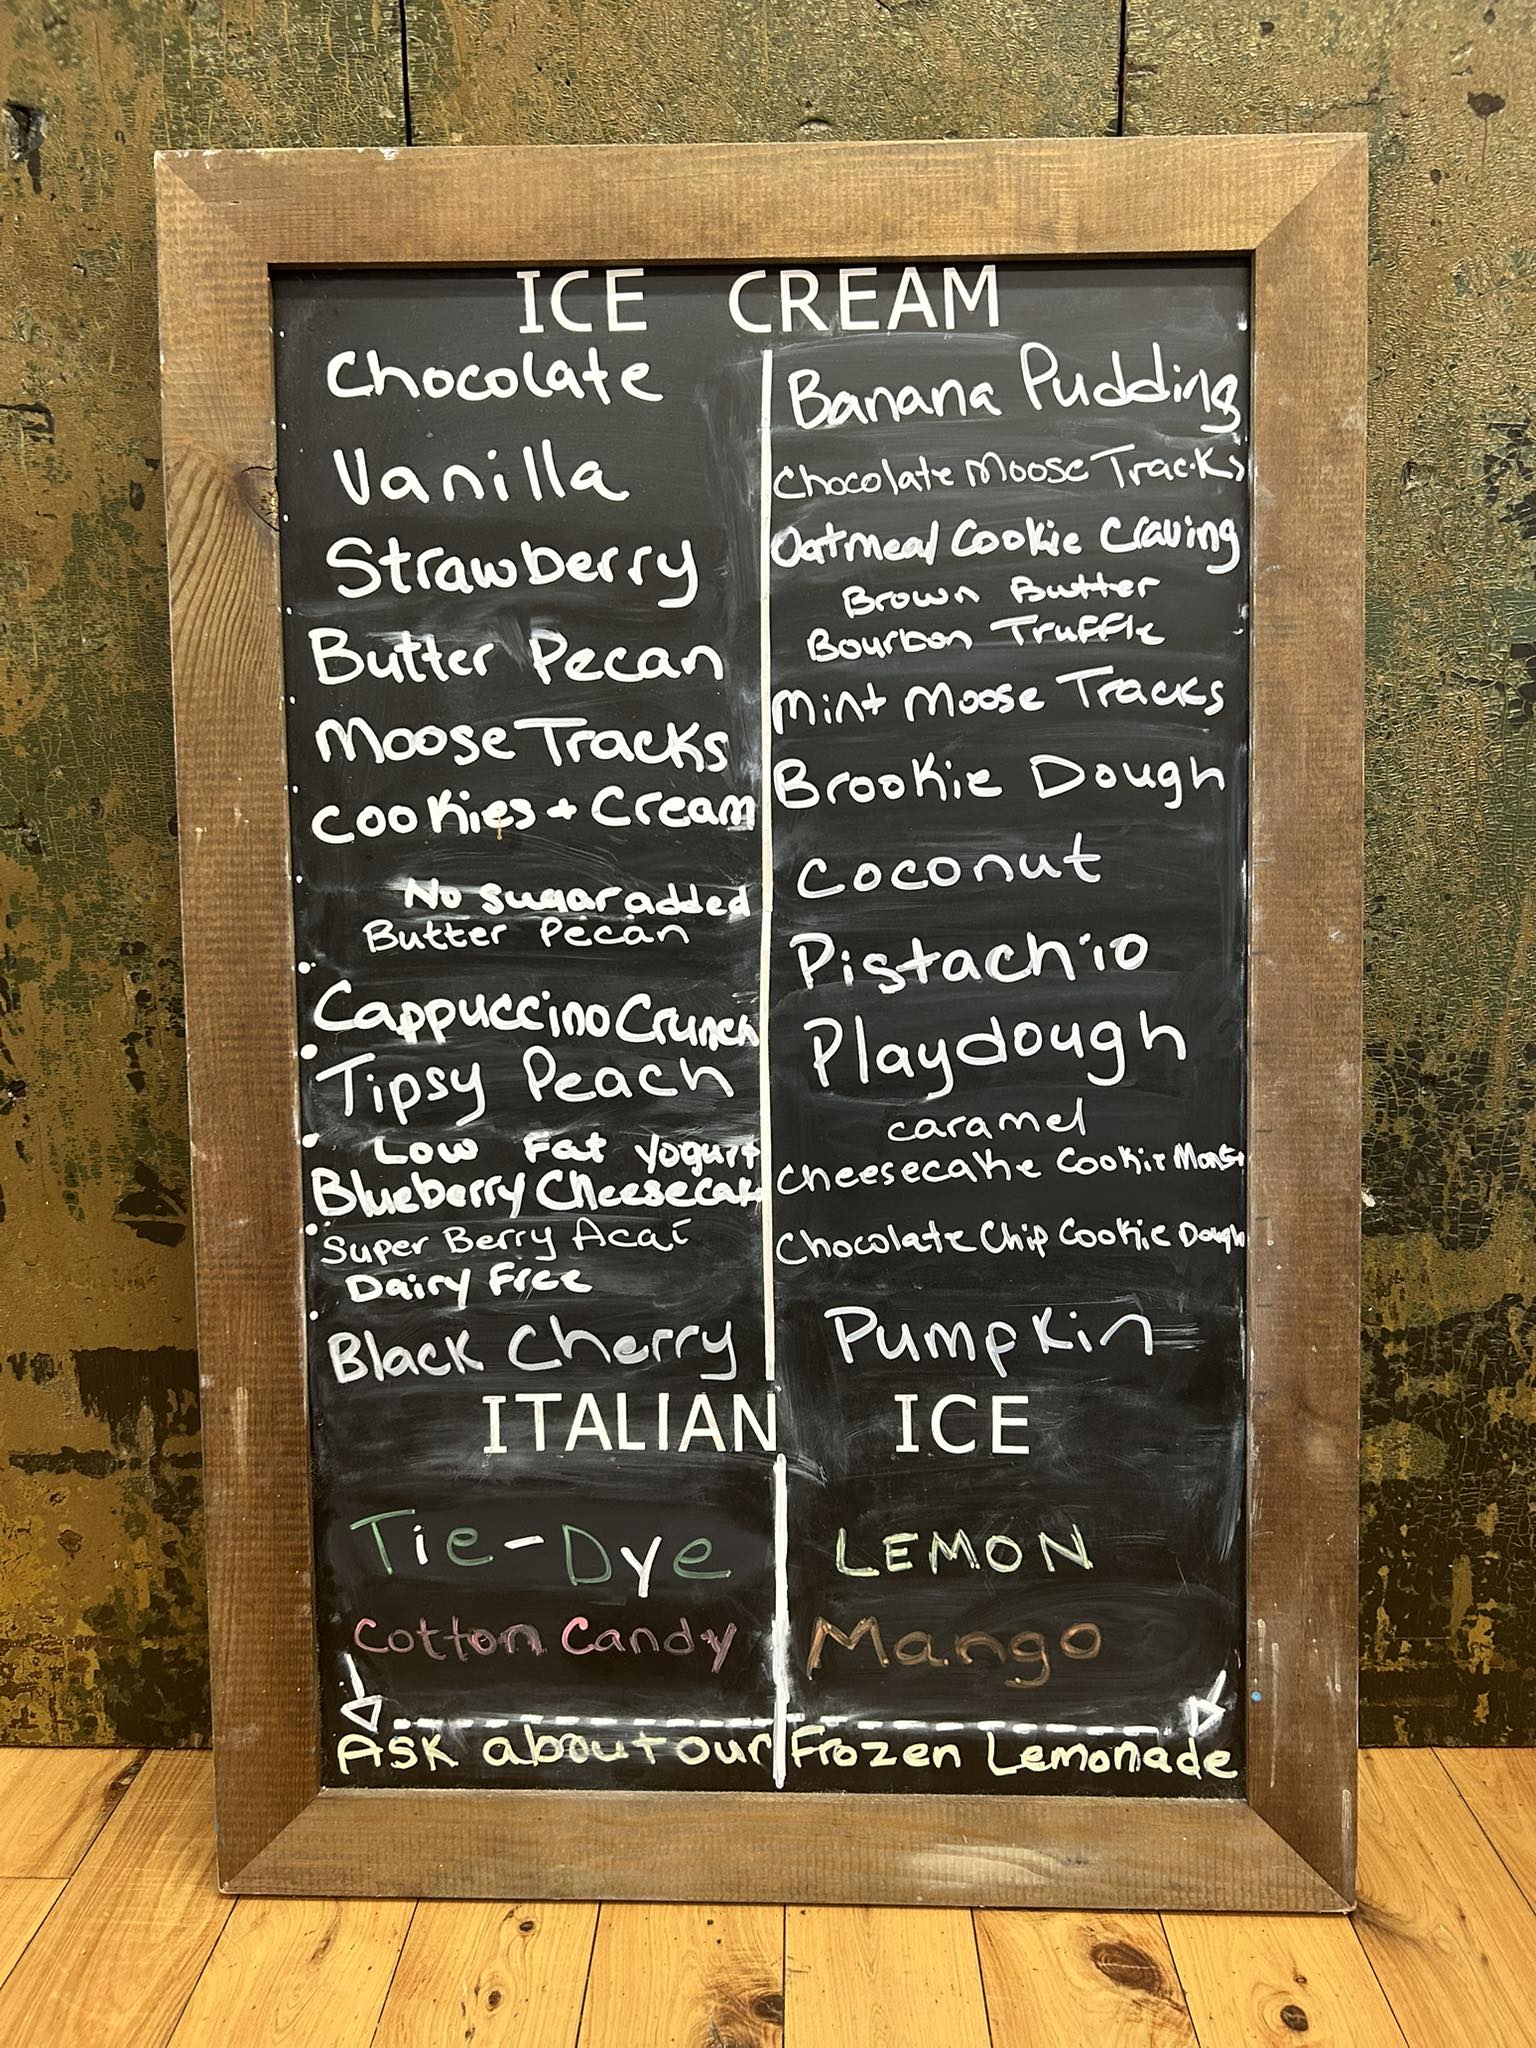 ICE CREAM
Chocolate
Vanilla
Strawberry
Butter Pecan
Moose Tracks
Cookies + Cream
No sugar added
Butter Pecan
Cappuccino Crunch
Tipsy Peach
Low Fat Yogurt
Blueberry Cheesecake
Super Berry Acaí
Dairy Free
Black Cherry
Banana Pudding
Chocolate Moose Tracks
Oatmeal Cookie Craving
Brown Butter
Bourbon Truffle
Mint Moose Tracks
Brookie Dough
Coconut
Pistachio
Playdough
caramel
Cheesecake Cookie
Chocolate Chip Cookie Dough
Pumpkin
ITALIAN ICE
Tie-Dye
Cotton Candy
LEMON
Mango
Ask about our Frozen Lemonade